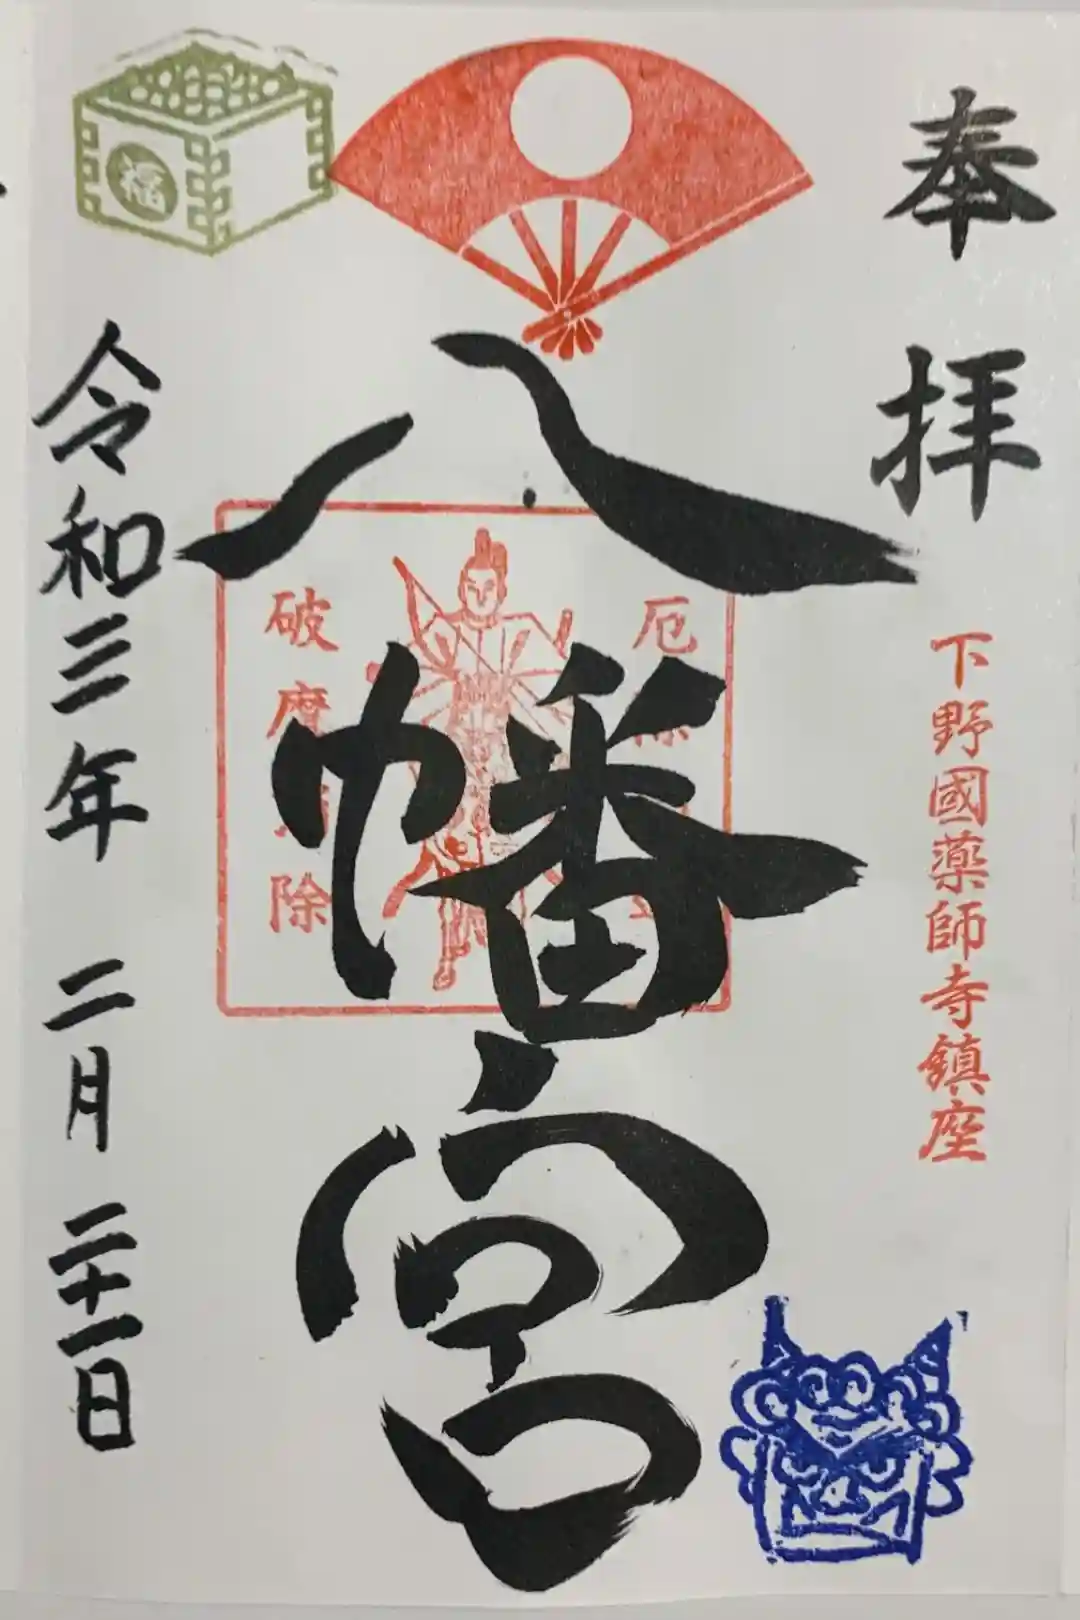 奉拝
下野國薬師寺鎮座
八幡宮
破魔
除
厄
令和三年 二月 二十一日
福